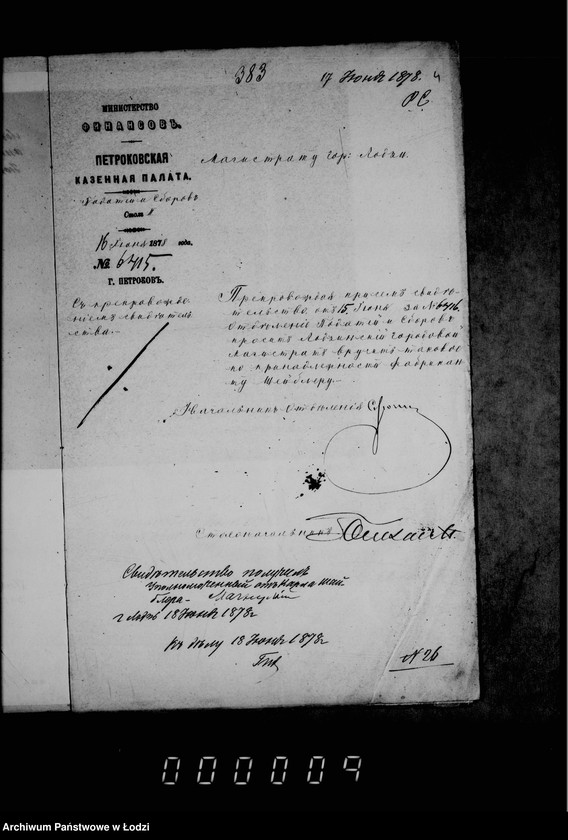 383
17 Июня 1878.
МИНИСТЕРСТВО
ФИНАНСОВЪ.
ПЕТРОКОВСКАЯ
КАЗЕННАЯ ПАЛАТА.
Податей и Сборовъ
Столъ
16 Июня 1878 года.
№ 6415.
Г. ПЕТРОКОВЪ.
Съ препровожде
ніемъ свидѣтель
ства.
Магистрату гор. Лодзи.
Препровождая при семъ свидѣ
тельство отъ 15 Июня за №6416,
Отдѣленіе Податей и Сборовъ
проситъ Лодзинскій Городовой
Магистратъ вручить таковое
по принадлежности фабрикан
ту Шейблеру.
Начальникъ Отдѣленія
Столоначальникъ
Свидѣтельство получилъ
Уполномоченный отъ Карла Шей
блера
г Лодзь 18 Июня 1878 г
Къ дѣлу 18 Июня 1878 г
N 26
000009
Archiwum Państwowe w Łodzi